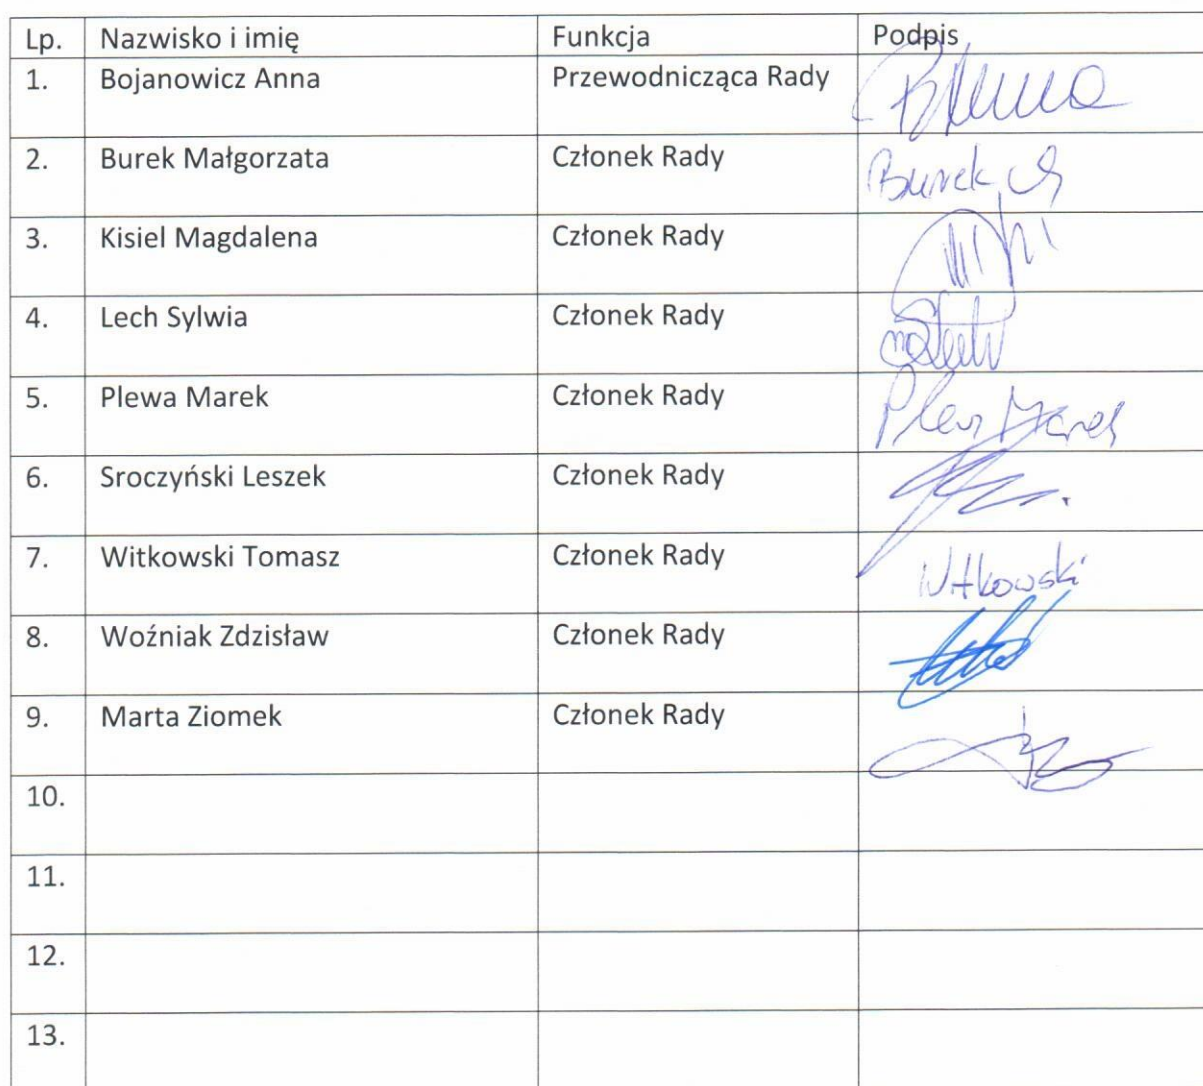 Lp. Nazwisko i imię Funkcja Podpis
1. Bojanowicz Anna Przewodnicząca Rady
2. Burek Małgorzata Członek Rady Burek
3. Kisiel Magdalena Członek Rady
4. Lech Sylwia Członek Rady
5. Plewa Marek Członek Rady Marek
6. Sroczyński Leszek Członek Rady
7. Witkowski Tomasz Członek Rady Witkowski
8. Woźniak Zdzisław Członek Rady
9. Marta Ziomek Członek Rady
10.
11.
12.
13.